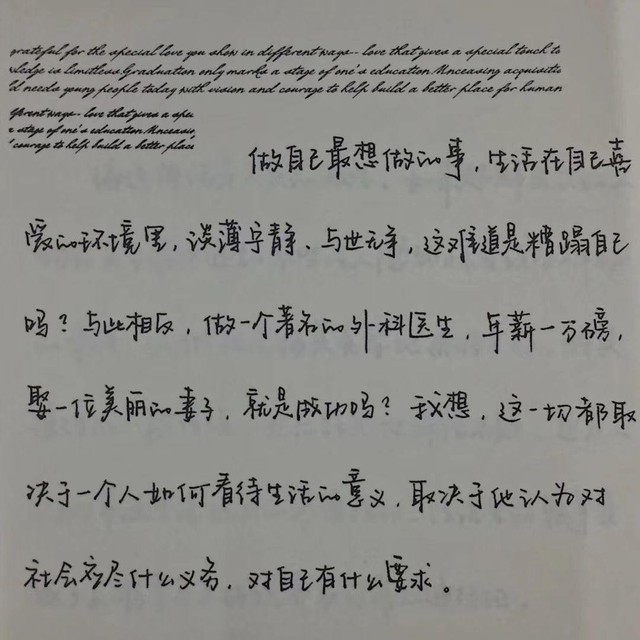 grateful for the special love you show in different ways-- love that gives a special touch to
wledge is limitless.Graduation only marks a stage of one's education.Unceasing acquisitio
ld needs young people today with vision and courage to help build a better place for human
fferent ways-- love that gives a spec
a stage of one's education.Unceasin
courage to help build a better place
做自己最想做的事，生活在自己喜
爱的环境里，淡薄宁静、与世无争，这难道是糟蹋自己
吗？与此相反，做一个著名的外科医生，年薪一万磅，
娶一位美丽的妻子，就是成功吗？我想，这一切都取
决于一个人如何看待生活的意义，取决于他认为对
社会应尽什么义务，对自己有什么要求。